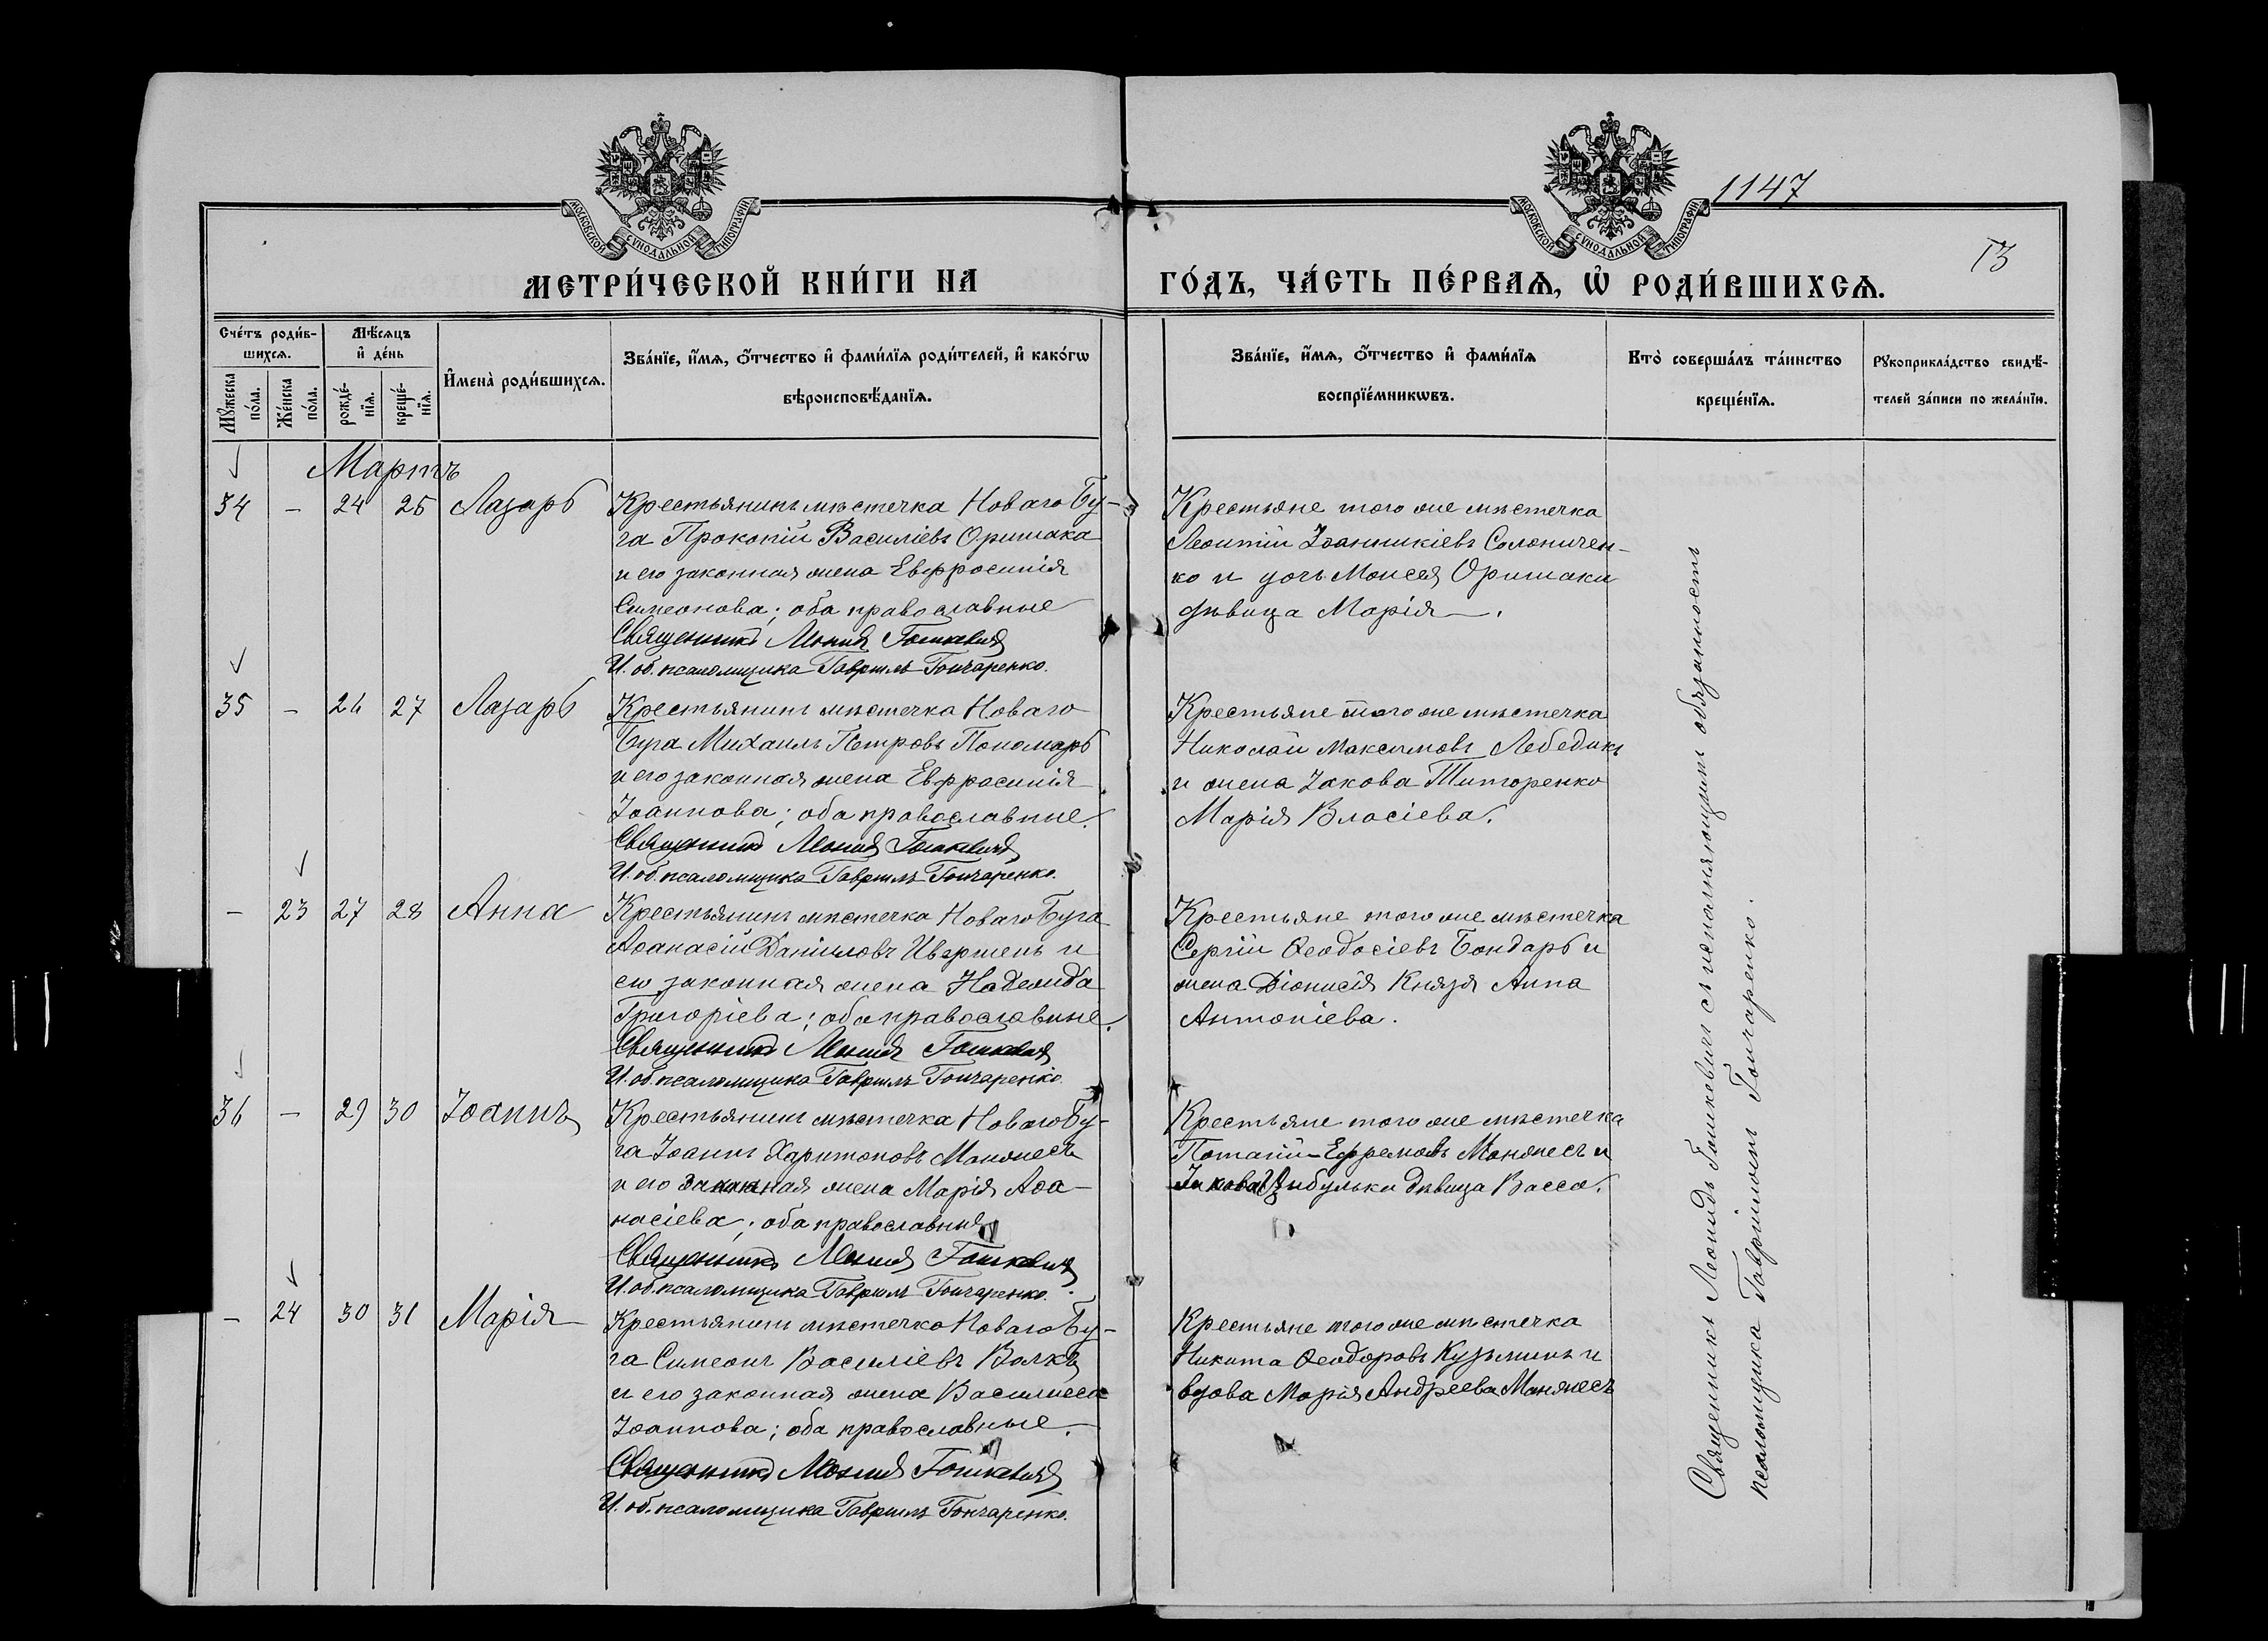 1147
13
МОСКОВСКОЙ СѴНОДАЛЬНОЙ ТИПОГРАФІИ
МОСКОВСКОЙ СѴНОДАЛЬНОЙ ТИПОГРАФІИ
МЕТРИ́ЧЕСКОЙ КНИ́ГИ НА ГО́ДЪ, ЧА́СТЬ ПЕ́РВАѦ, Ѡ҆ РОДИ́ВШИХСѦ.
Сче́тъ роди́в-
шихсѧ.
Мѣ́сѧцъ
и҆ де́нь
Мꙋ́жеска
по́ла.
Же́нска
по́ла.
рожде́-
нїѧ.
креще́-
нїѧ.
И҆мена̀ роди́вшихсѧ.
Зва́нїе, и҆́мѧ, ѻ҆́тчество и҆ фами́лїѧ роди́телей, и҆ како́гѡ
вѣроисповѣ́данїѧ.
Зва́нїе, и҆́мѧ, ѻ҆́тчество и҆ фами́лїѧ
воспрїе́мникѡвъ.
Кто̀ соверша́лъ та́инство
креще́нїѧ.
Рꙋкоприкла́дство свидѣ́-
телей за́писи по жела́нїю.
Мартъ
34 – 24 25 Лазарь
Крестьянинъ мѣстечка Новаго Бу-
га Прокопій Василіевъ Оришака
и его законная жена Евфросинія
Симеонова; оба православные
Священникъ Леонидъ Гошкевичъ
И. об. псаломщика Гавріилъ Гончаренко.
Крестьяне того же мѣстечка
Леонтій Іоанникіевъ Солониченко-
ко и дочь Моисея Оришаки
дѣвица Марія.
35 – 26 27 Лазарь
Крестьянинъ мѣстечка Новаго
Буга Михаилъ Петровъ Пономарь
и его законная жена Евфросинія
Іоаннова; оба православные.
Священникъ Леонидъ Гошкевичъ
И. об. псаломщика Гавріилъ Гончаренко.
Крестьяне того же мѣстечка
Николай Максимовъ Лебедикъ
и жена Іакова Титоренко
Марія Власіева.
– 23 27 28 Анна
Крестьянинъ мѣстечка Новаго Буга
Аѳанасій Даніиловъ Ивершень и
его законная жена Надежда
Григоріева; оба православные.
Священникъ Леонидъ Гошкевичъ
И. об. псаломщика Гавріилъ Гончаренко.
Крестьяне того же мѣстечка
Сергій Ѳеодосіевъ Бондарь и
жена Діонисія Князя Анна
Антоніева.
36 – 29 30 Іоаннъ
Крестьянинъ мѣстечка Новаго Бу-
га Іоаннъ Харитоновъ Манжесъ
и его законная жена Марія Аѳа-
насіева; оба православные
Священникъ Леонидъ Гошкевичъ
И. об. псаломщика Гавріилъ Гончаренко.
Крестьяне того же мѣстечка
Потапій Ефремовъ Манжесъ и
Іакова Цибульки дѣвица Васса.
– 24 30 31 Марія
Крестьянинъ мѣстечка Новаго Бу-
га Симеонъ Василіевъ Волкъ
и его законная жена Василисса
Іоаннова; оба православные.
Священникъ Леонидъ Гошкевичъ
И. об. псаломщика Гавріилъ Гончаренко.
Крестьяне того же мѣстечка
Никита Ѳеодоровъ Кузьминъ и
вдова Марія Андреева Манжесъ
Священникъ Леонидъ Гошкевичъ съ исполняющимъ обязанность
псаломщика Гавріиломъ Гончаренко.